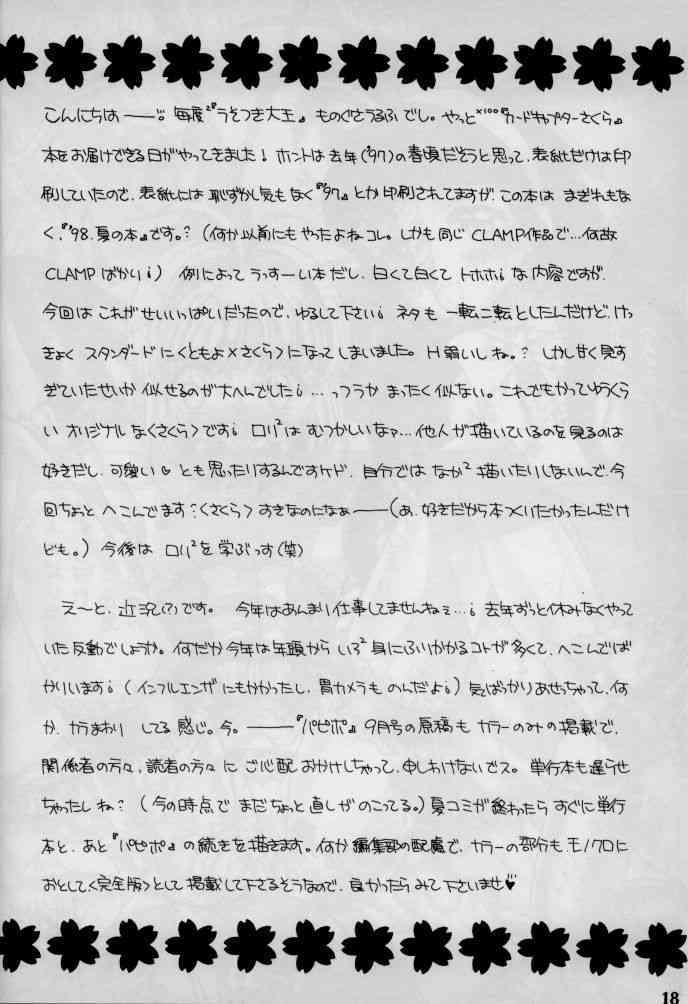 こんにちは――。毎度²『うそつき大王』ものぐさうるふでし。やっと×100『カードキャプターさくら』
本をお届けできる日がやってきました！ホントは去年('97)の春頃だそうと思って、表紙だけは印
刷していたので、表紙には恥ずかし気もなく『'97』とか印刷されてますが、この本はまぎれもな
く、『'98.夏の本』です。？（何か以前にもやったよねコレ。しかも同じCLAMP作品で…何故
CLAMPばかり¡）例によってうっすーい本だし、白くて白くてトホホ¡な内容ですが、
今回はこれがせいいっぱいだったので、ゆるして下さい¡ネタも一転二転としたんだけど、けっ
きょくスタンダードに＜ともよ×さくら＞になってしまいました。H弱いしね。？しかし甘く見す
ぎていたせいか似せるのが大へんでした¡…っつうかまったく似ない。これでもかってゆうくら
いオリジナルな＜さくら＞です¡ロリ²はむつかしいなァ…他人が描いているのを見るのは
好きだし、可愛い♡とも思ったりするんですケド、自分ではなか²描いたりしないんで、今
回ちょっとへこんでます？＜さくら＞すきなのになぁ――（あ、好きだから本つくいたかったんだけ
ども。）今後はロリ²を学ぶっす（笑）
え～と、近況(?)です。今年はあんまり仕事してませんねェ…¡去年ずっと休みなくやって
いた反動でしょうか。何だか今年は年頭からいろ²身にふいかかるコトが多くて、へこんでば
かりいます¡（インフルエンザにもかかったし、胃カメラものんだよ¡）気ばっかりあせっちゃって、何
か、カラまわりしてる感じ。今。――『パピポ』9月号の原稿もカラーのみの掲載で、
関係者の方々、読者の方々にご心配おかけしちゃって、申しわけないでス。単行本も遅らせ
ちゃったしね？（今の時点でまだちょっと直しがのこってる。）夏コミが終わったらすぐに単行
本と、あと『パピポ』の続きを描きます。何か編集部の配慮で、カラーの部分も、モノクロに
おとして＜完全版＞として掲載して下さるそうなので、良かったらみて下さいませ♥
18